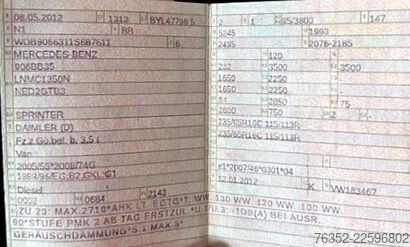 06.05.2012 1313 BYL477995
N1 BB
WDB9066311S687611 6
MERCEDES-BENZ
906BB35
LNMC1350N
NED2GTB3
SPRINTER
DAIMLER (D)
Fz.z.Gü.bef. b. 3,5 t
Van
2005/55*2008/74G
1999/96/EG;B2;GKL:G1
Diesel
0002 0684 2143
2 1 95/3800 147
5245 1993
2435 2076-2185
120
232 3500 3500
1650 2250
1650 2250
84 75
2800 750 2
235/65R16C 115/113R
235/65R16C 115/113R
e1*2007/46*0301*04
12.01.2012 K VW183467
ZU 20: MAX.2710*AHK LT. EGTG*T: WW. 130 WW. 120 WW. 100 WW.
90*STUFE PMK 2 AB TAG ERSTZUL.*U.1/U.3: -108(A) BEI AUSR.
GERÄUSCHDÄMMUNG*S.1 MAX 3*
76352-22596802